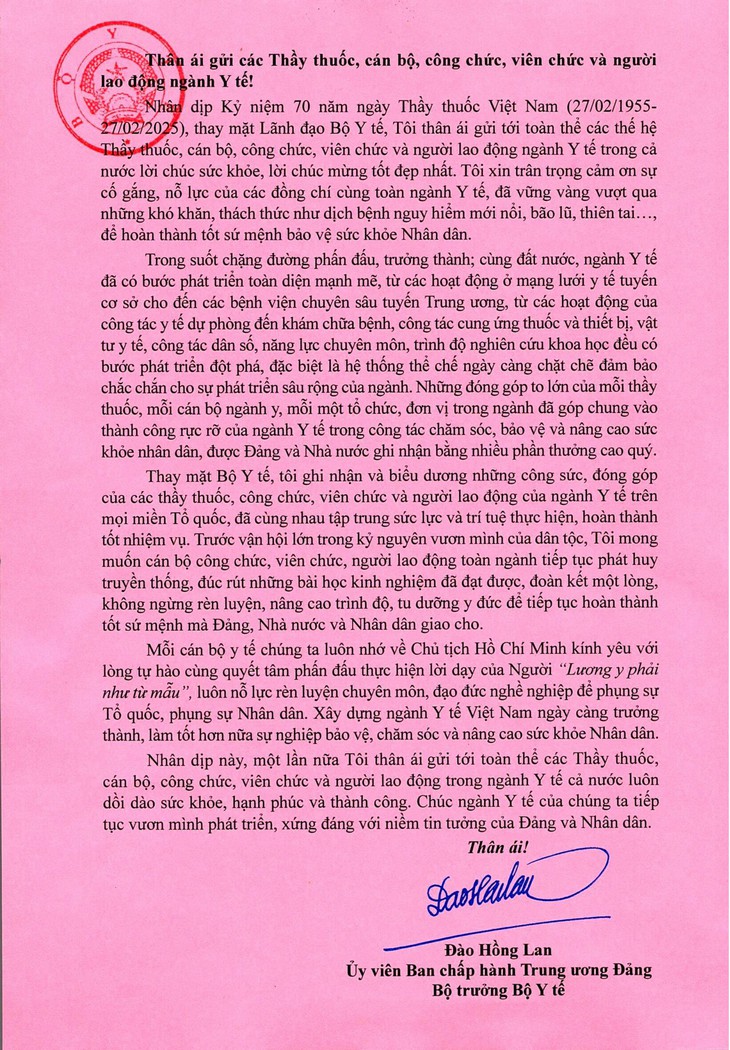 BỘ Y
Thân ái gửi các Thầy thuốc, cán bộ, công chức, viên chức và người
lao động ngành Y tế!
Nhân dịp Kỷ niệm 70 năm ngày Thầy thuốc Việt Nam (27/02/1955-
27/02/2025), thay mặt Lãnh đạo Bộ Y tế, Tôi thân ái gửi tới toàn thể các thế hệ
Thầy thuốc, cán bộ, công chức, viên chức và người lao động ngành Y tế trong cả
nước lời chúc sức khỏe, lời chúc mừng tốt đẹp nhất. Tôi xin trân trọng cảm ơn sự
cố gắng, nỗ lực của các đồng chí cùng toàn ngành Y tế, đã vững vàng vượt qua
những khó khăn, thách thức như dịch bệnh nguy hiểm mới nổi, bão lũ, thiên tai…,
để hoàn thành tốt sứ mệnh bảo vệ sức khỏe Nhân dân.
Trong suốt chặng đường phấn đấu, trưởng thành; cùng đất nước, ngành Y tế
đã có bước phát triển toàn diện mạnh mẽ, từ các hoạt động ở mạng lưới y tế tuyến
cơ sở cho đến các bệnh viện chuyên sâu tuyến Trung ương, từ các hoạt động của
công tác y tế dự phòng đến khám chữa bệnh, công tác cung ứng thuốc và thiết bị, vật
tư y tế, công tác dân số, năng lực chuyên môn, trình độ nghiên cứu khoa học đều có
bước phát triển đột phá, đặc biệt là hệ thống thể chế ngày càng chặt chẽ đảm bảo
chắc chắn cho sự phát triển sâu rộng của ngành. Những đóng góp to lớn của mỗi thầy
thuốc, mỗi cán bộ ngành y, mỗi một tổ chức, đơn vị trong ngành đã góp chung vào
thành công rực rỡ của ngành Y tế trong công tác chăm sóc, bảo vệ và nâng cao sức
khỏe nhân dân, được Đảng và Nhà nước ghi nhận bằng nhiều phần thưởng cao quý.
Thay mặt Bộ Y tế, tôi ghi nhận và biểu dương những công sức, đóng góp
của các thầy thuốc, công chức, viên chức và người lao động của ngành Y tế trên
mọi miền Tổ quốc, đã cùng nhau tập trung sức lực và trí tuệ thực hiện, hoàn thành
tốt nhiệm vụ. Trước vận hội lớn trong kỷ nguyên vươn mình của dân tộc, Tôi mong
muốn cán bộ công chức, viên chức, người lao động toàn ngành tiếp tục phát huy
truyền thống, đúc rút những bài học kinh nghiệm đã đạt được, đoàn kết một lòng,
không ngừng rèn luyện, nâng cao trình độ, tu dưỡng y đức để tiếp tục hoàn thành
tốt sứ mệnh mà Đảng, Nhà nước và Nhân dân giao cho.
Mỗi cán bộ y tế chúng ta luôn nhớ về Chủ tịch Hồ Chí Minh kính yêu với
lòng tự hào cùng quyết tâm phấn đấu thực hiện lời dạy của Người “Lương y phải
như từ mẫu”, luôn nỗ lực rèn luyện chuyên môn, đạo đức nghề nghiệp để phụng sự
Tổ quốc, phụng sự Nhân dân. Xây dựng ngành Y tế Việt Nam ngày càng trưởng
thành, làm tốt hơn nữa sự nghiệp bảo vệ, chăm sóc và nâng cao sức khỏe Nhân dân.
Nhân dịp này, một lần nữa Tôi thân ái gửi tới toàn thể các Thầy thuốc,
cán bộ, công chức, viên chức và người lao động trong ngành Y tế cả nước luôn
dồi dào sức khỏe, hạnh phúc và thành công. Chúc ngành Y tế của chúng ta tiếp
tục vươn mình phát triển, xứng đáng với niềm tin tưởng của Đảng và Nhân dân.
Thân ái!
DaoHailan
Đào Hồng Lan
Ủy viên Ban chấp hành Trung ương Đảng
Bộ trưởng Bộ Y tế